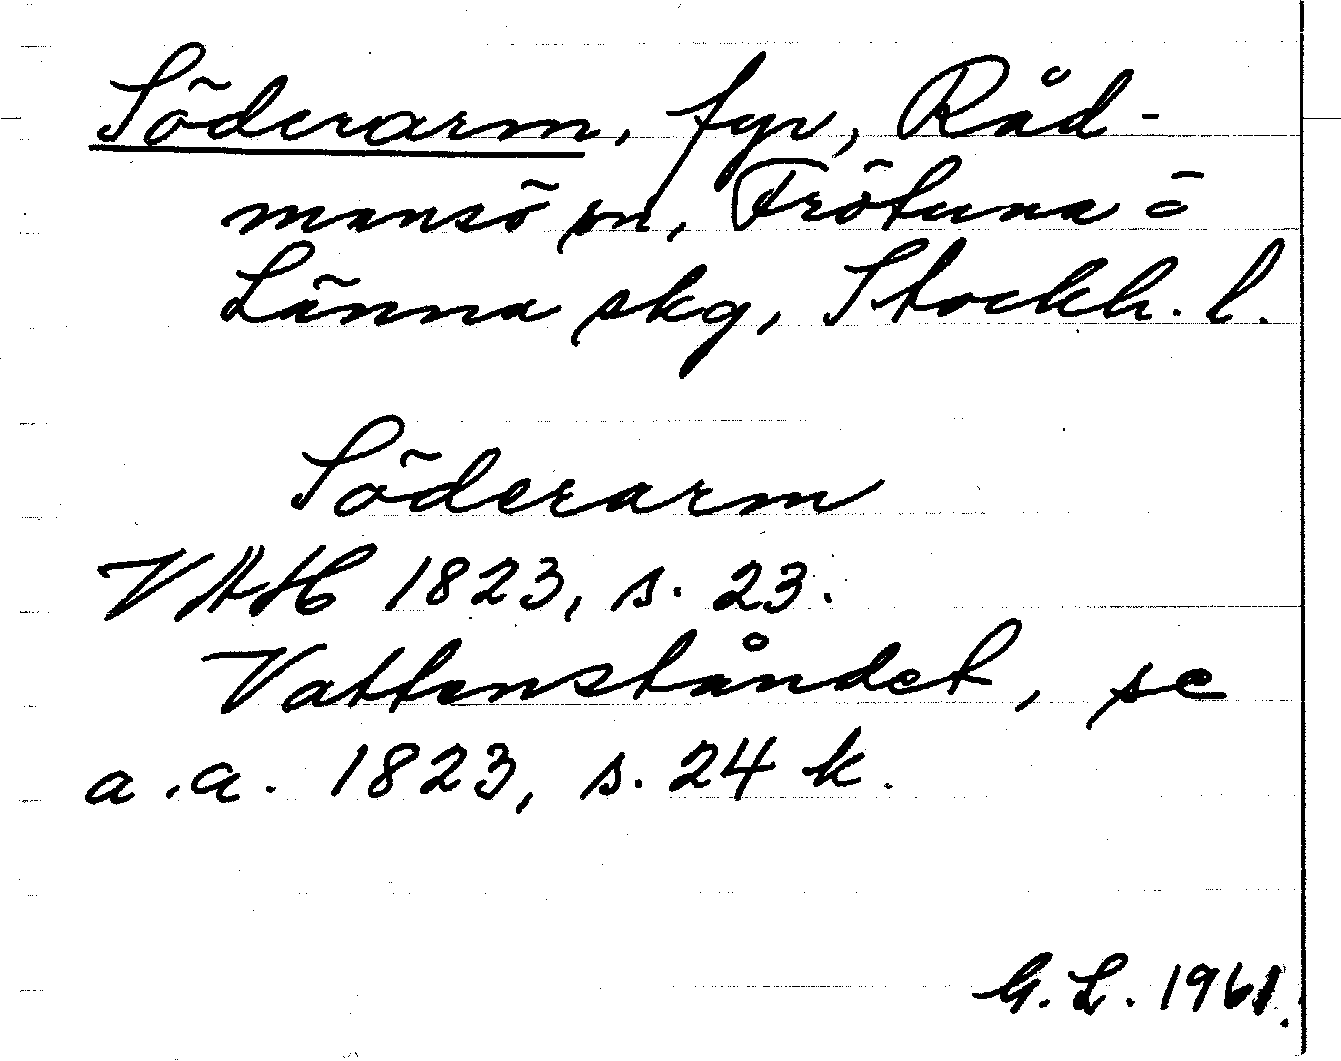 Söderarm, fyr, Råd-
mansö sn, Frötuna o
Länna skg, Stockh. l.
Söderarm
VAH 1823, s. 23.
Vattenståndet, se
a.a. 1823, s. 24 k.
G. L. 1961.